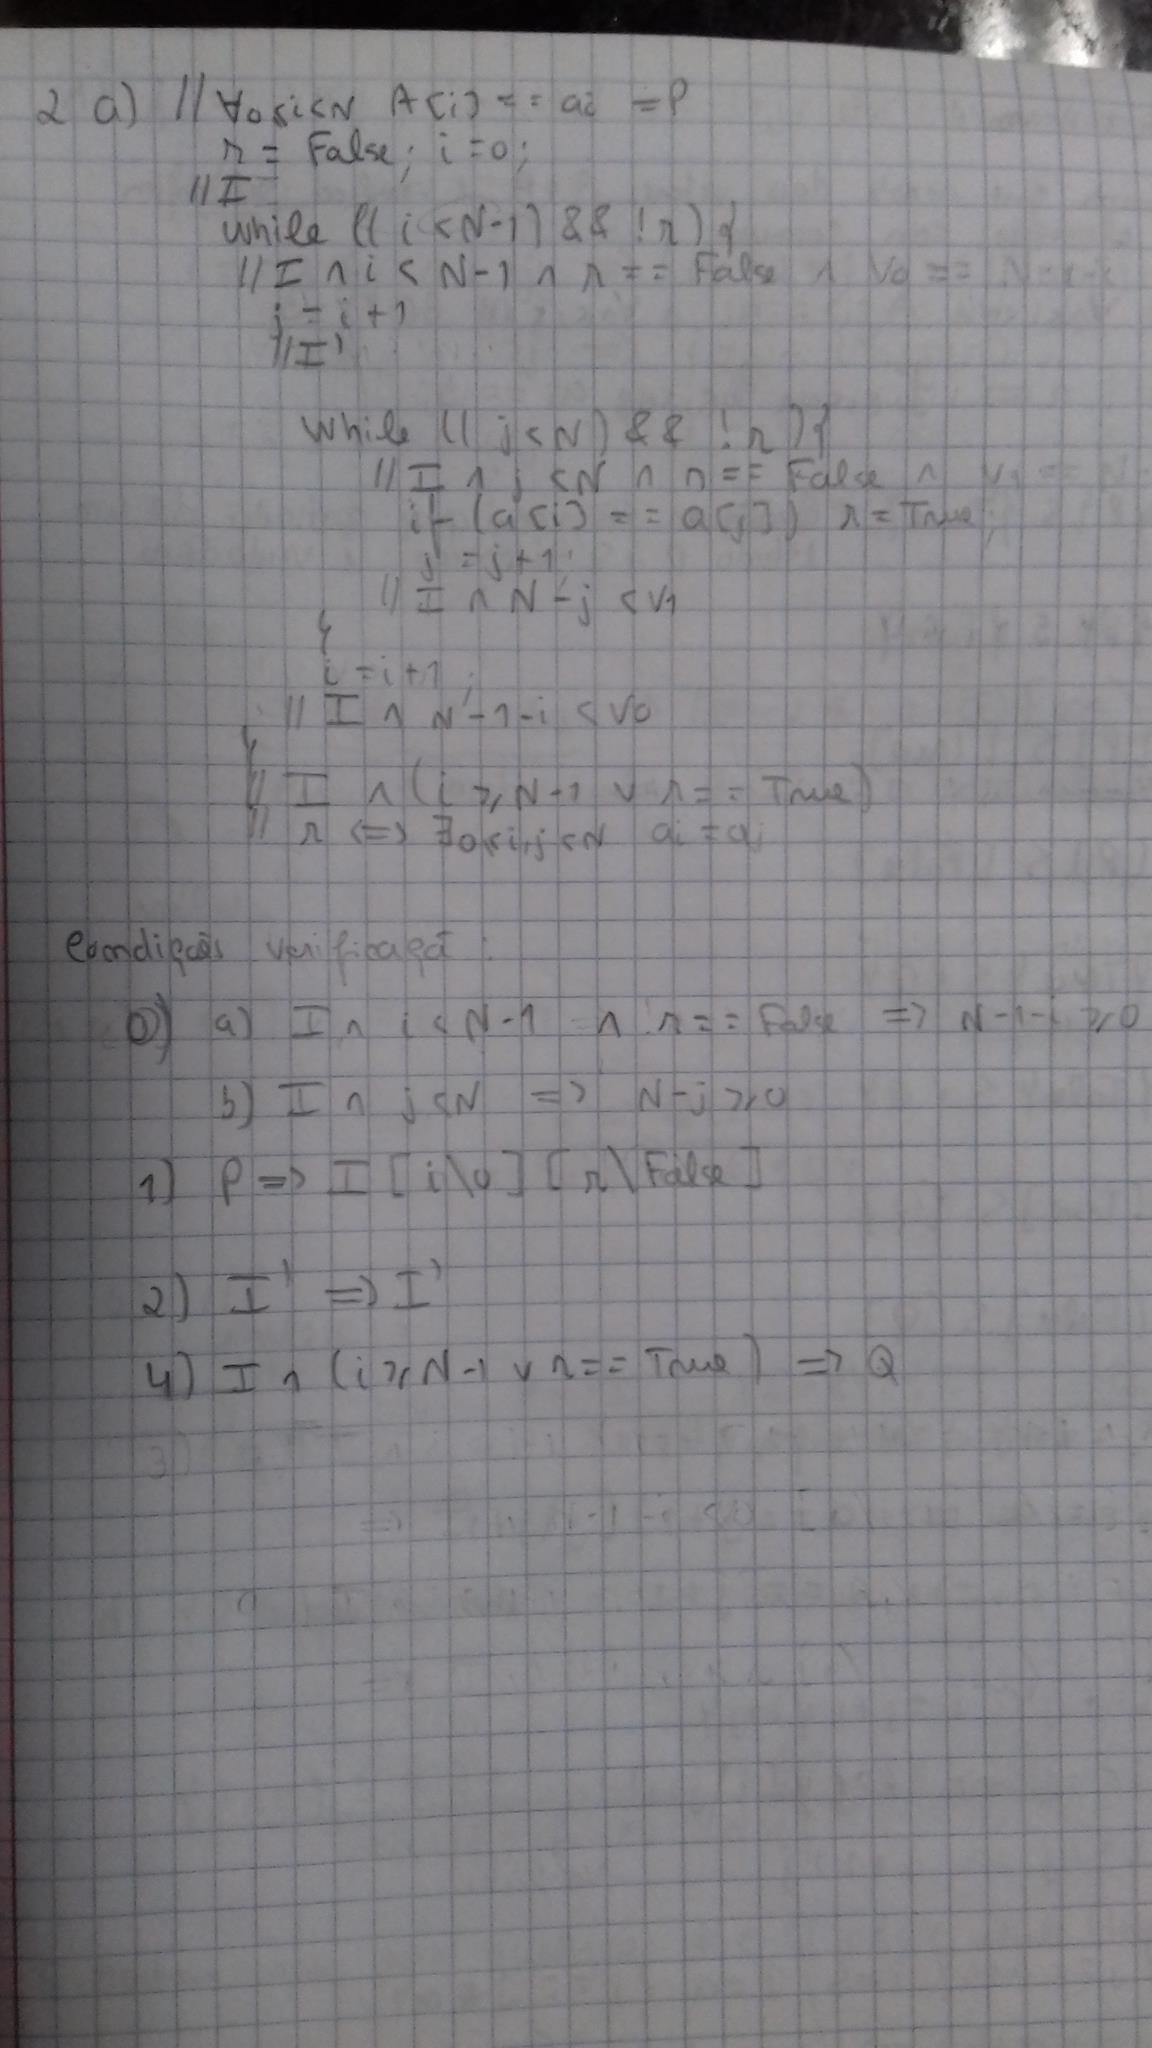 2 a) // ∀0≤i<N A[i] == ai = P
r = False; i = 0;
// I
while (( i < N-1) && !r) {
// I ∧ i < N-1 ∧ r == False ∧ v0 == N-1-i
j = i + 1
// I'
while (( j < N) && !r) {
// I ∧ j < N ∧ r == False ∧ v1 ==
if (a[i] == a[j]) r = True;
j = j + 1;
// I ∧ N - j < v1
}
i = i + 1;
// I ∧ N - 1 - i < v0
}
// I ∧ (i ≥ N-1 ∨ r == True)
// r <=> ∃0≤i,j<N ai = aj
Condições verificaçã :
0) a) I ∧ i < N-1 ∧ r == False => N-1-i ≥ 0
b) I ∧ j < N => N-j ≥ 0
1) P => I [i\0] [r\False]
2) I' => I'
4) I ∧ (i ≥ N-1 ∨ r == True) => Q
3)